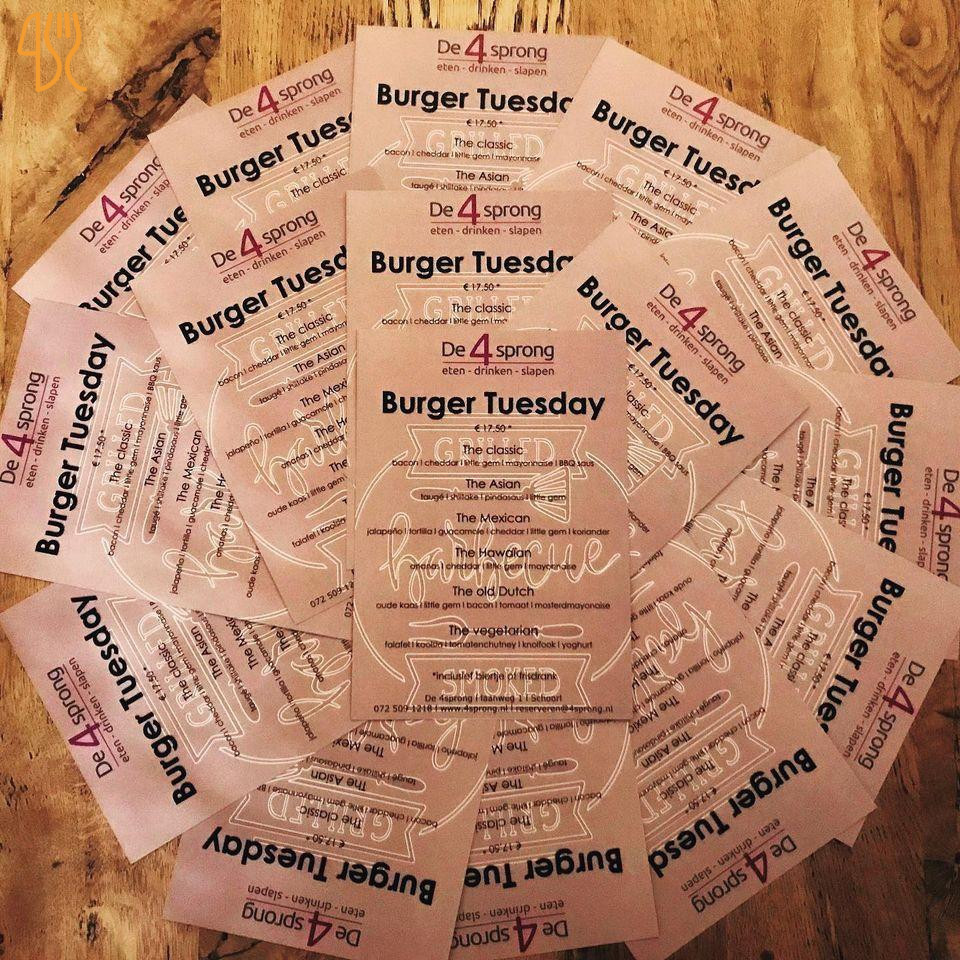 De 4 sprong
eten - drinken - slapen
Burger Tuesday
€ 17,50 *
The classic
bacon | cheddar | little gem | mayonnaise | BBQ saus
The Asian
taugé | shiitake | pindasaus | little gem
The Mexican
jalapeño | tortilla | guacamole | cheddar | little gem | koriander
The Hawaiian
ananas | cheddar | little gem | mayonnaise
The old Dutch
oude kaas | little gem | bacon | tomaat | mosterdmayonaise
The vegetarian
falafel | koolsla | tomatenchutney | knoflook | yoghurt
*inclusief biertje of frisdrank
De 4sprong | laanweg 1 | Schoorl
072 509 1218 | www.4sprong.nl | reserveren@4sprong.nl
GRILLED
barbecue
SMOKED